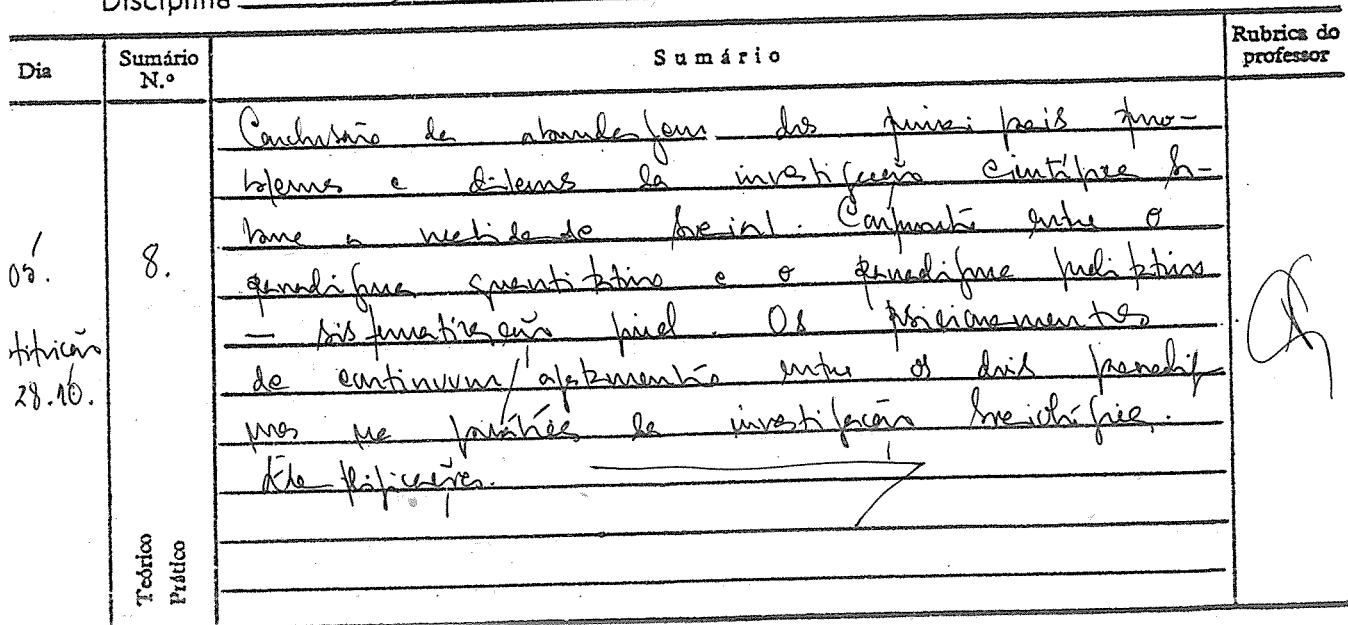 Disciplina
Dia
Sumário N.º
Sumário
Rubrica do professor
05.
stituição
28.10.
8.
Teórico
Prático
Conclusão da abordagem dos principais pro-
blemas e dilemas da investigação científica so-
bre a realidade social. Confronto entre o
paradigma quantitativo e o paradigma qualitativo
— sistematização final. Os posicionamentos
de continuum/afastamento entre os dois paradig
mas na prática da investigação sociológica.
Exemplificações.